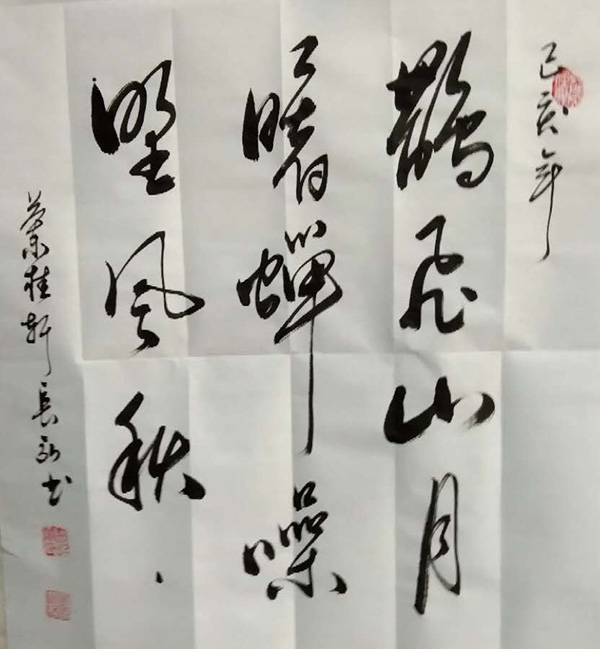 己亥年
鹊飞山月
曙蝉噪
野风秋
桂轩长书